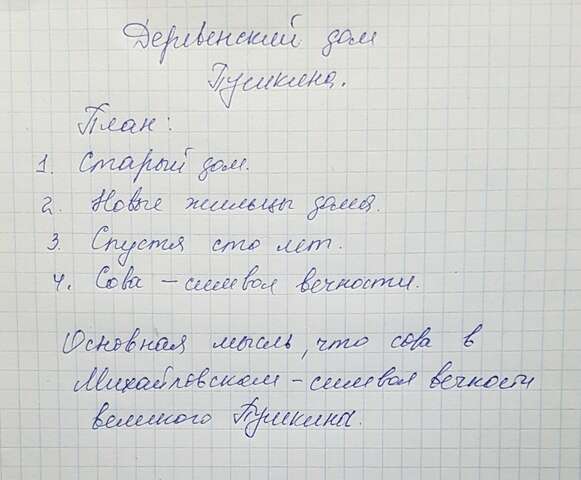 Деревенский дом
Пушкина.
План:
1. Старый дом.
2. Новые жильцы дома.
3. Спустя сто лет.
4. Сова – символ вечности.
Основная мысль, что сова в
Михайловском – символ вечности
великого Пушкина.